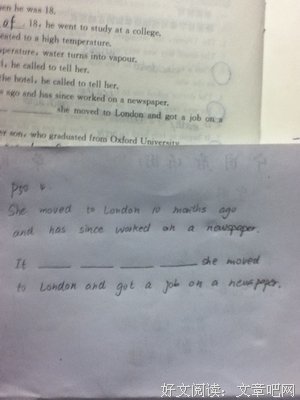 en he was 18.
of 18, he went to study at a college.
eated to a high temperature.
perature, water turns into vapour.
l, he called to tell her.
the hotel, he called to tell her.
s ago and has since worked on a newspaper.
she moved to London and got a job on a
er son, who graduated from Oxford University
She moved to London 10 months ago
and has since worked on a newspaper.
It ____ ____ ____ ____ she moved
to London and got a job on a newspaper.
好文阅读:文章吧网